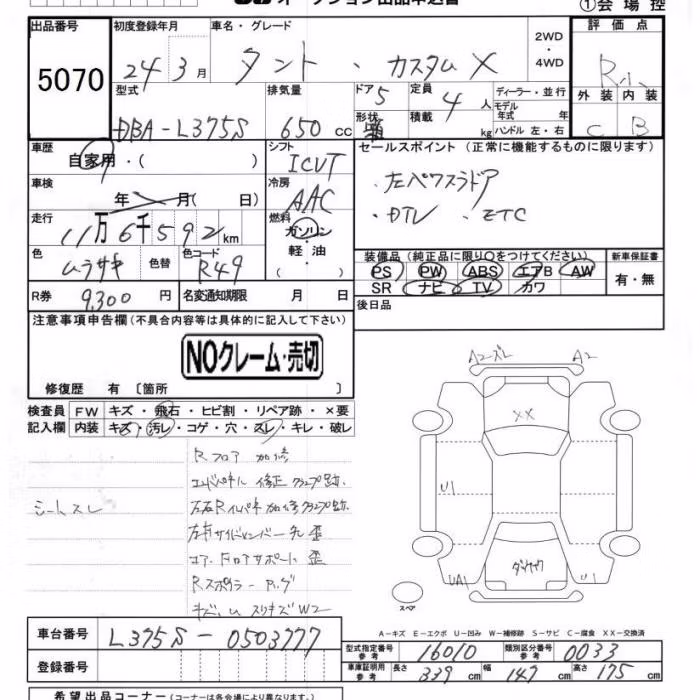 オークション出品申込書
①会場控
出品番号 初度登録年月 車名・グレード 2WD・4WD 評価点
5070 24年3月 タント・カスタムX R小
型式 排気量 ドア 5 定員 4人 ディーラー・並行 外装 内装
DBA-L375S 650cc 形状 箱 積載 kg モデル年式 年 ハンドル 左・右 C B
車歴 自家用・( ) シフト ICVT セールスポイント (正常に機能するものに限ります)
車検 年 月( 日) 冷房 AAC ・左パワスラドア
走行 11万6千592km 燃料 ガソリン 軽油 ( ) ・DTV 、ETC
色 ムラサキ 色替 色コード R49 装備品 (純正品に限り○をつけてください) 新車保証書
PS PW ABS エアB AW 有・無
SR ナビ TV カワ
R券 9,300円 名変通知期限 月 日 後日品
注意事項申告欄(不具合内容等は具体的に記入して下さい)
NOクレーム・売切
修復歴 有 〔箇所 〕
検査員 FW キズ・飛石・ヒビ割・リペア跡・×要
記入欄 内装 キズ・汚レ・コゲ・穴・スレ・キレ・破レ
シートスレ
Rフロア 加修
エンドパネル 修正 クランプ跡
左右Rインパネ 加修 クランプ跡
左右サイドメンバー先 歪
コアFロアサポート 歪
Rスポイラー
スリキズW2
A2ズレ A2
XX
U1
UA1 U1
スペア
A-キズ E-エクボ U-凹み W-補修跡 S-サビ C-腐食 XX-交換済
車台番号 L375S-0503777
型式指定番号 参考 16010 類別区分番号 参考 0033
登録番号 車庫証明用 参考 長さ 339cm 幅 147cm 高さ 175cm
希望出品コーナー(コーナーは各会場により異なります。)